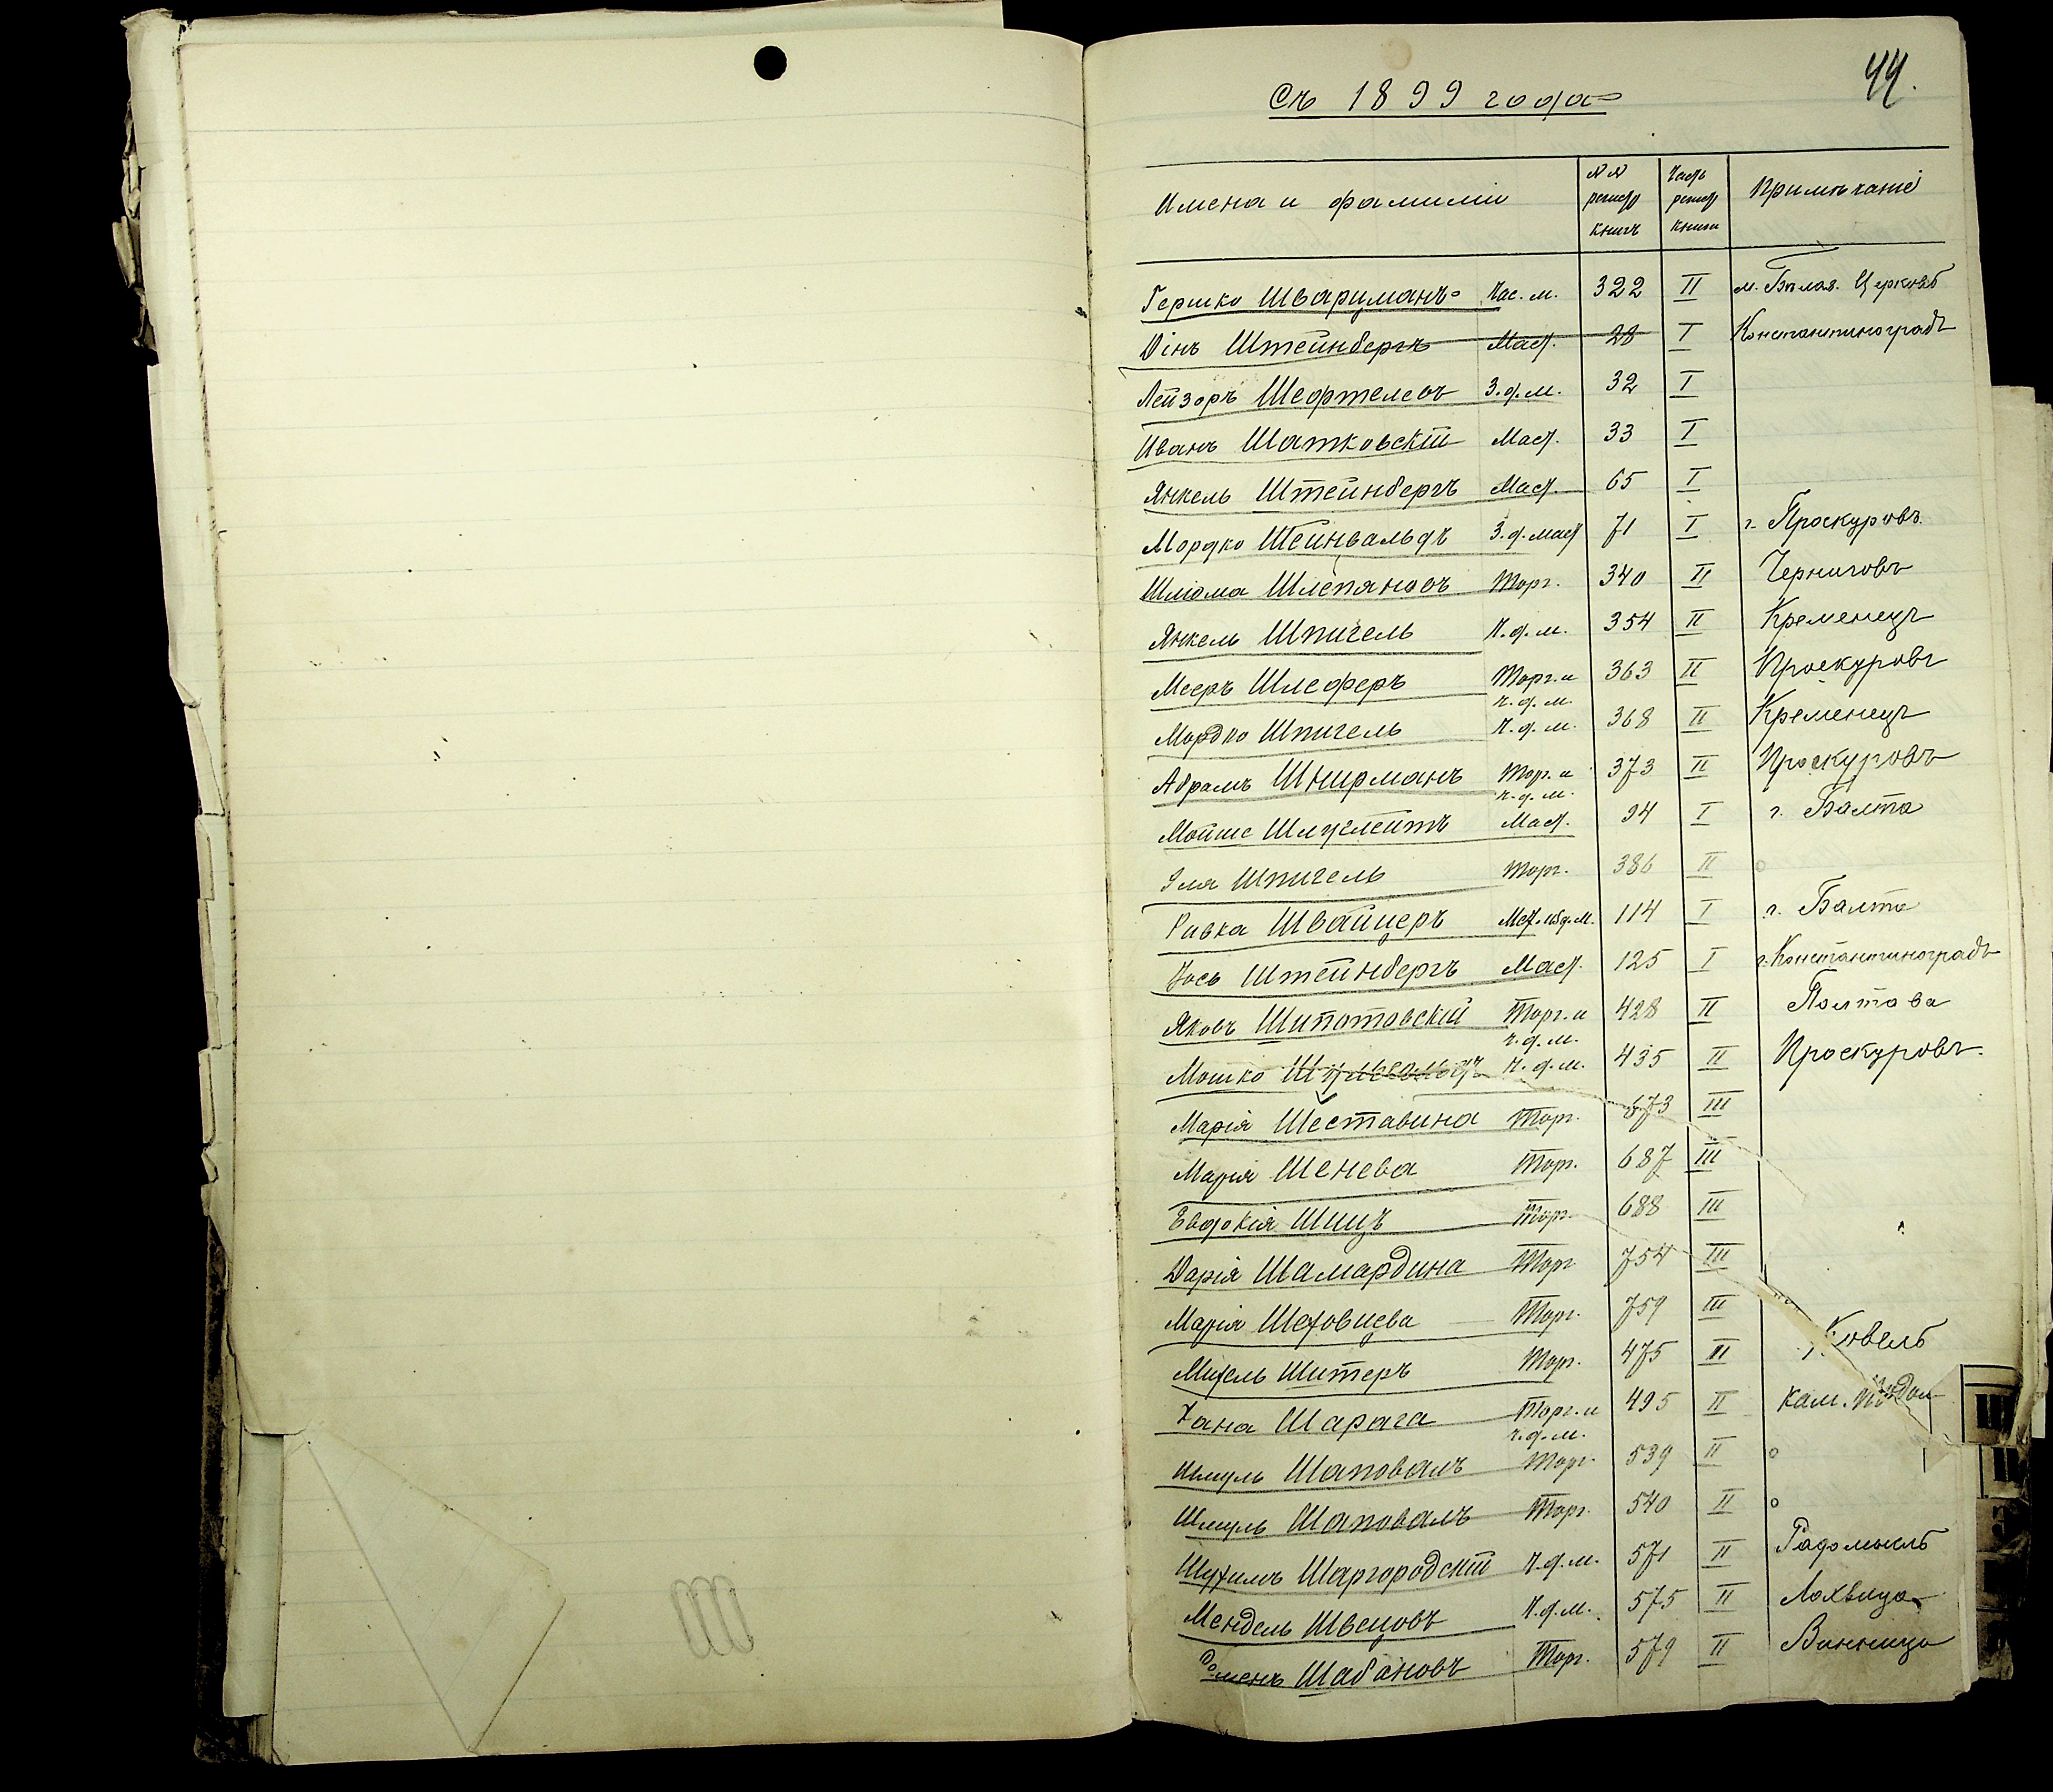 44.
Съ 1899 года
Имена и фамиліи №№ регистр книгъ Часть регист книги Примѣчаніе
Гершко Шварцманъ Час. м. 322 II м. Бѣлая Церковь
Штейнбергъ Маст. 28 I Константиноградъ
Лейзоръ Шефтелевъ З. д. м. 32 I
Иванъ Шатковскій Маст. 33 I
Янкель Штейнбергъ Маст. 65 I
Мордко Шейнвальдъ З. д. маст 71 I г. Проскуровъ
Шліома Шлепяновъ Торг. 340 II Черниговъ
Янкель Шпигель Ч. д. м. 354 II Кременецъ
Мееръ Шлеферъ Торг. и ч. д. м. 363 II Проскуровъ
Мордко Шпигель Ч. д. м. 368 II Кременецъ
Абрамъ Шнирманъ Торг. и ч. д. м. 373 II Проскуровъ
Мойше Маст. 94 I г. Балта
Эля Шпигель Торг. 386 II
Ривка Швайцеръ 114 I г. Балта
Іось Штейнбергъ Маст. 125 I г. Константиноградъ
Яковъ Шипотовскій Торг. и ч. д. м. 428 II Полтава
Мошко Ч. д. м. 435 II Проскуровъ.
Марія Шеставина Торг. 673 III
Марія Шенева Торг. 687 III
Евдокія Шицъ Торг. 688 III
Дарія Шамардина Торг 754 III
Марія Шеховцева Торг. 759 III
Михель Шитеръ Торг. 475 II Ковель
Хана Шарага Торг. и ч. д. м. 495 II Кам. Подол
Шмуль Шаповалъ Торг. 539 II
Шмуль Шаповалъ Торг. 540 II
Шаргородскій Ч. д. м. 571 II Радомысль
Мендель Швецовъ Ч. д. м. 575 II Лохвица
Шабановъ Торг. 579 II Винница